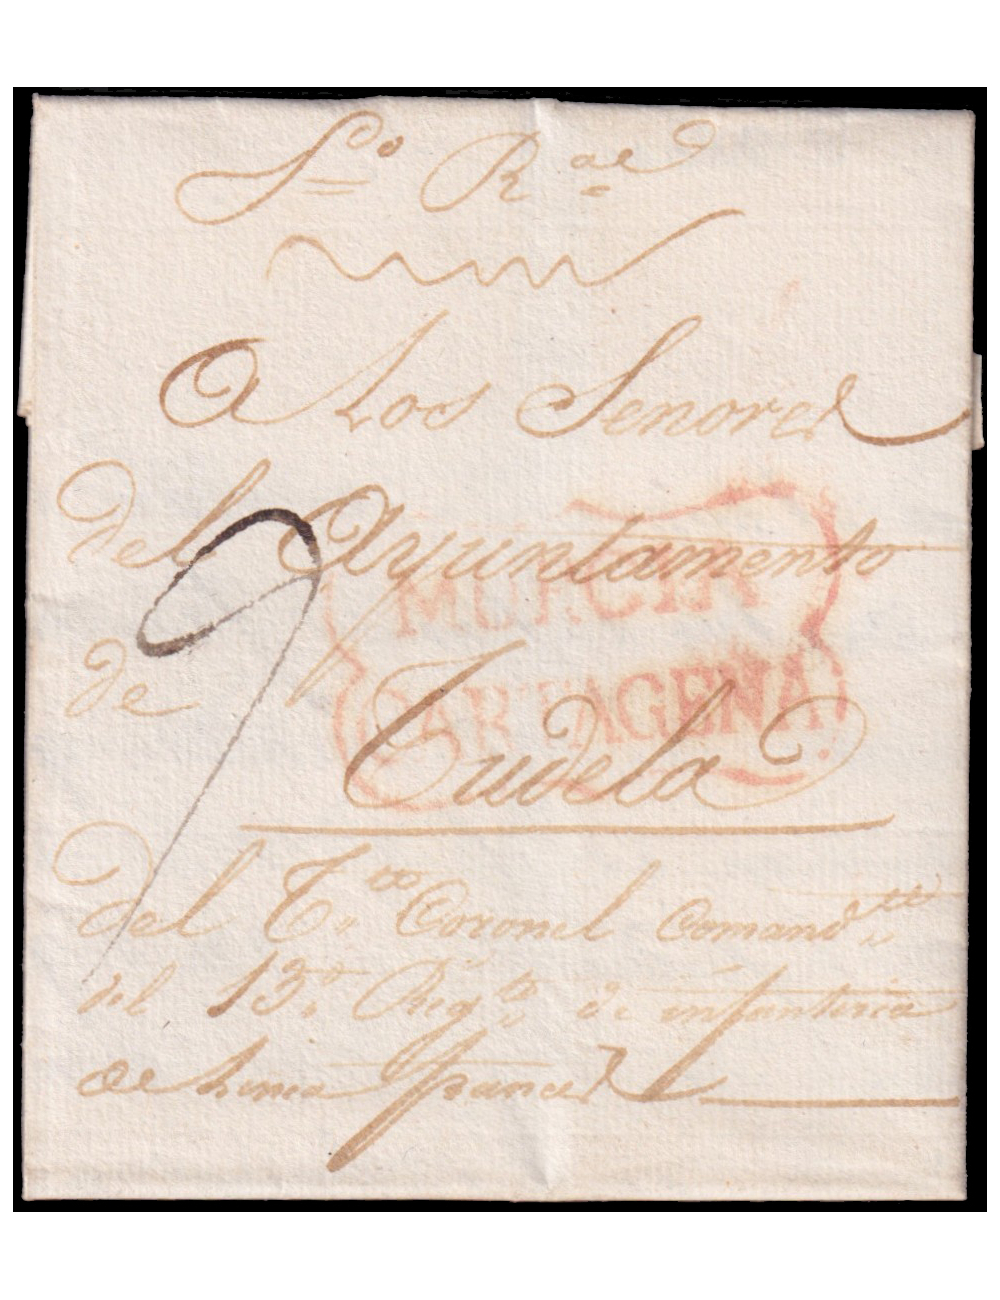 S.do R.ae
A Los Señores
del Ayuntamento
de
Tudela
MURCIA
CARTAGENA
9
del T.te Coronel Comand.te
del 13.º Reg.to de infanteria
de Linea